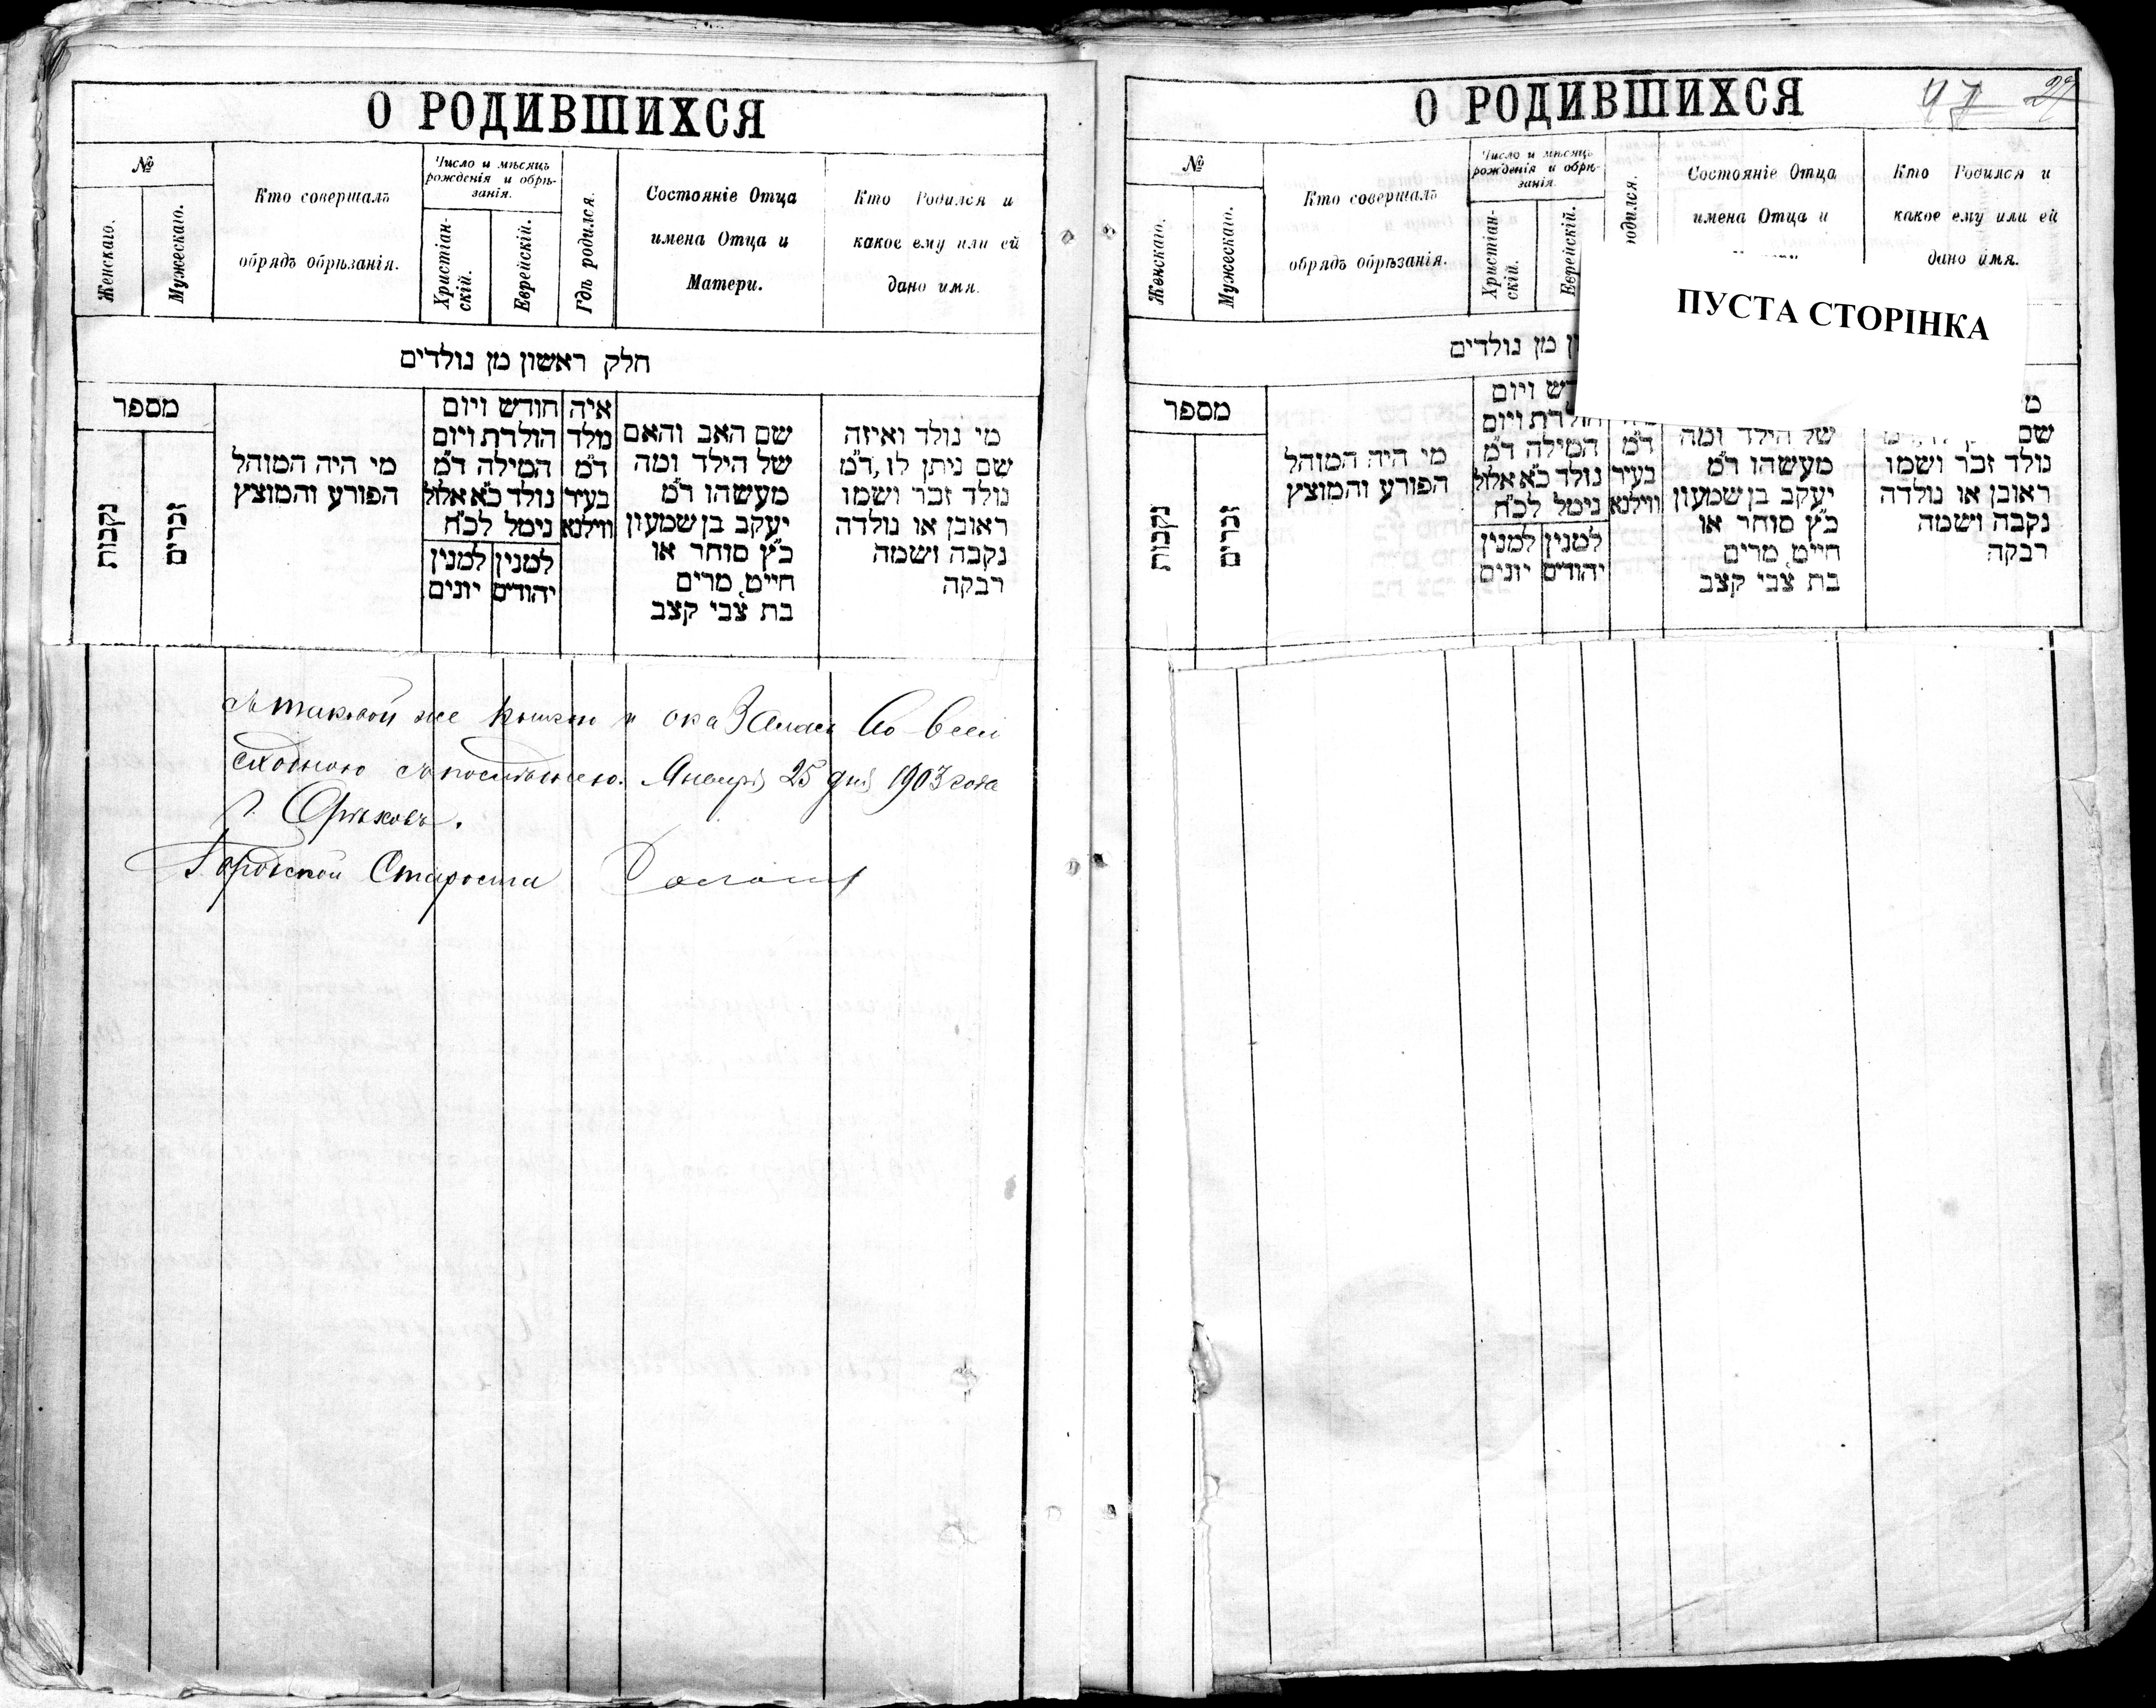 О РОДИВШИХСЯ
№
Женскаго.
Мужескаго.
Кто совершалъ
обрядъ обрѣзанія.
Число и мѣсяцъ
рожденія и обрѣ-
занія.
Христіан-
скій.
Еврейскій.
Гдѣ родился.
Состояніе Отца
имена Отца и
Матери.
Кто Родился и
какое ему или ей
дано имя.
חלק ראשון מן נולדים
מספר
נקבות
זכרים
מי היה המוהל
הפורע והמוציץ
חודש ויום
הולדת ויום
המילה ד״מ
נולד כ״א אלול
נימל לכ״ח
למנין
יהודים
למנין
יונים
איה
מלד
ד״מ
בעיר
ווילנא
שם האב והאם
של הילד ומה
מעשהו ד״מ
יעקב בן שמעון
כ״ץ סוחר או
חייט, מרים
בת צבי קצב
מי נולד ואיזה
שם ניתן לו, ד״מ
נולד זכר ושמו
ראובן או נולדה
נקבה ושמה
רבקה
съ таковой же книгою и оказалась во всем
сходною съ последнею. Января 25 дня 1903 года
г. Орѣховъ.
Городской Староста
О РОДИВШИХСЯ
47 29
№
Женскаго.
Мужескаго.
Кто совершалъ
обрядъ обрѣзанія.
Число и мѣсяцъ
рожденія и обрѣ-
занія.
Христіан-
скій.
Еврейскій.
одился.
Состояніе Отца
имена Отца и
Кто Родился и
какое ему или ей
дано имя.
ПУСТА СТОРІНКА
מן נולדים
מספר
נקבות
זכרים
מי היה המוהל
הפורע והמוציץ
ויום
הולדת ויום
המילה ד״מ
נולד כ״א אלול
נימל לכ״ח
למנין
יהודים
למנין
יונים
ד״מ
בעיר
ווילנא
של הילד ומה
מעשהו ד״מ
יעקב בן שמעון
כ״ץ סוחר או
חייט, מרים
בת צבי קצב
שם
נולד זכר ושמו
ראובן או נולדה
נקבה ושמה
רבקה